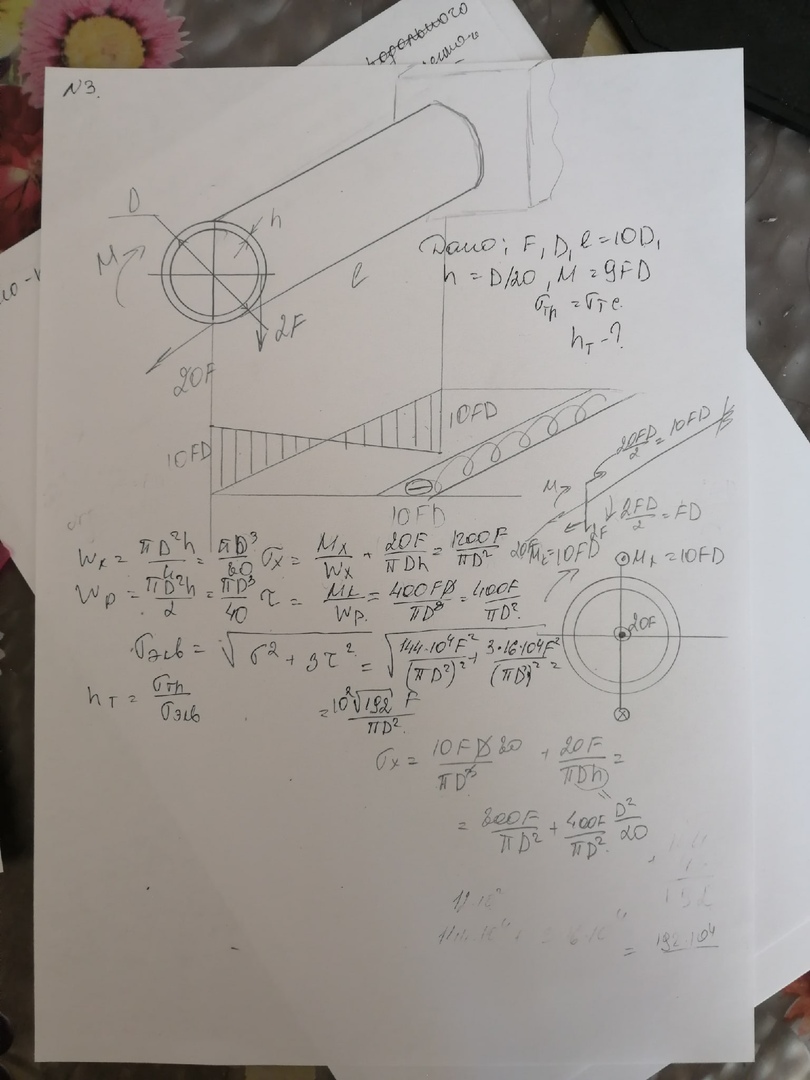 N3.
D
h
M
l
2F
20F
Дано: F, D, l = 10D,
h = D/20, M = 9FD
σтр = σт с.
hт - ?
10FD
10FD
10FD
20FD/2 = 10FD
M
2FD/2 = FD
2F
20F
Mк = 10FD
Mx = 10FD
20F
Wx = πD²h/4 = πD³/80 σx = Mx/Wx + 20F/πDh = 1200F/πD²
Wp = πD²h/2 = πD³/40 τ = Mк/Wp = 400FD/πD³ = 400F/πD²
σэкв = √(σ² + 3τ²) = √(144·10⁴F²/(πD²)² + 3·16·10⁴F²/(πD²)²) =
hт = σтр/σэкв
= 10²√192 F/πD²
σx = 10FD 80/πD³ + 20F/πDh =
= 800F/πD² + 400F/πD² D²/20
= 192·10⁴